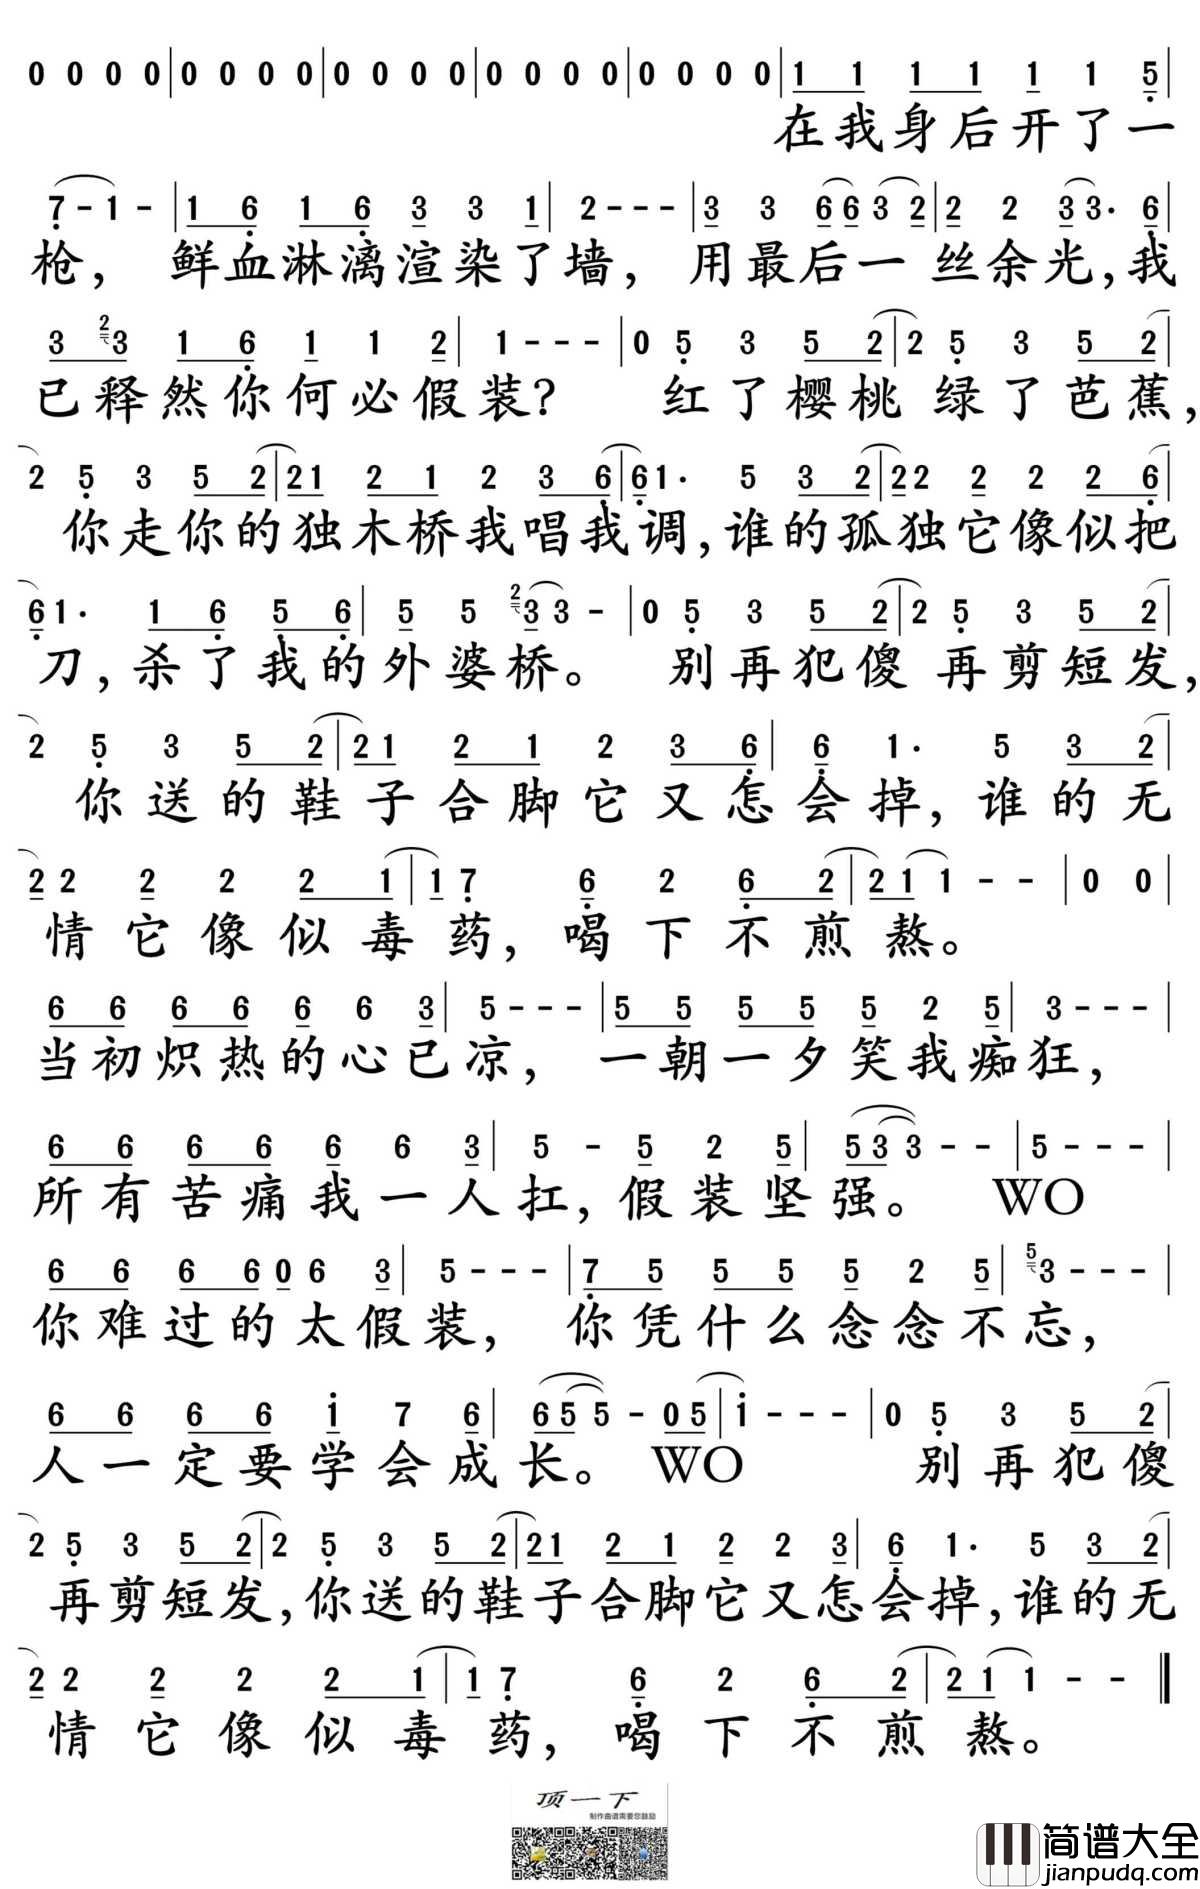 0 0 0 0|0 0 0 0|0 0 0 0|0 0 0 0|0 0 0 0|1 1 1 1 1 1 5|
在我身后开了一
7 - 1 -|1 6 1 6 3 3 1|2 - - -|3 3 6 6 3 2|2 2 3 3· 6|
枪，鲜血淋漓渲染了墙，用最后一丝余光，我
3 2 3 1 6 1 1 2|1 - - -|0 5 3 5 2|2 5 3 5 2|
已释然你何必假装？红了樱桃绿了芭蕉，
2 5 3 5 2|2 1 2 1 2 3 6|6 1· 5 3 2|2 2 2 2 2 6|
你走你的独木桥我唱我调，谁的孤独它像似把
6 1· 1 6 5 6|5 5 2 3 3 -|0 5 3 5 2|2 5 3 5 2|
刀，杀了我的外婆桥。别再犯傻再剪短发，
2 5 3 5 2|2 1 2 1 2 3 6|6 1· 5 3 2|
你送的鞋子合脚它又怎会掉，谁的无
2 2 2 2 2 1|1 7 6 2 6 2|2 1 1 - -|0 0|
情它像似毒药，喝下不煎熬。
6 6 6 6 6 6 3|5 - - -|5 5 5 5 5 2 5|3 - - -|
当初炽热的心已凉，一朝一夕笑我痴狂，
6 6 6 6 6 6 3|5 - 5 2 5|5 3 3 - -|5 - - -|
所有苦痛我一人扛，假装坚强。WO
6 6 6 6 0 6 3|5 - - -|7 5 5 5 5 2 5|5 3 - - -|
你难过的太假装，你凭什么念念不忘，
6 6 6 6 1 7 6|6 5 5 - 0 5|1 - - -|0 5 3 5 2|
人一定要学会成长。WO 别再犯傻
2 5 3 5 2|2 5 3 5 2|2 1 2 1 2 2 3|6 1· 5 3 2|
再剪短发，你送的鞋子合脚它又怎会掉，谁的无
2 2 2 2 2 1|1 7 6 2 6 2|2 1 1 - -‖
情它像似毒药，喝下不煎熬。
顶一下
制作曲谱需要您鼓励
简谱大全
jianpudq.com